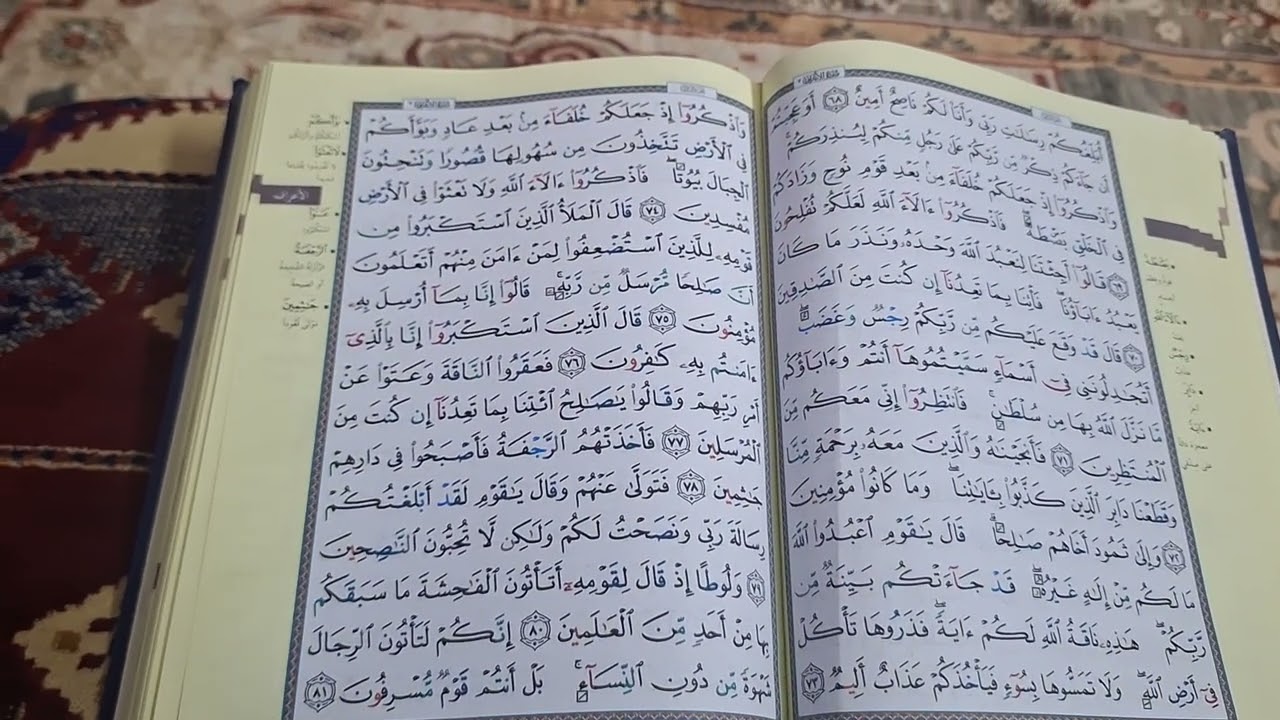 أُبَلِّغُكُمْ رِسَٰلَٰتِ رَبِّى وَأَنَا۠ لَكُمْ نَاصِحٌ أَمِينٌ ٦٨ أَوَعَجِبْتُمْ
أَن جَآءَكُمْ ذِكْرٌ مِّن رَّبِّكُمْ عَلَىٰ رَجُلٍ مِّنكُمْ لِيُنذِرَكُمْ ۚ
وَٱذْكُرُوٓا۟ إِذْ جَعَلَكُمْ خُلَفَآءَ مِنۢ بَعْدِ قَوْمِ نُوحٍ وَزَادَكُمْ
فِى ٱلْخَلْقِ بَصْۜطَةً ۖ فَٱذْكُرُوٓا۟ ءَالَآءَ ٱللَّهِ لَعَلَّكُمْ تُفْلِحُونَ
٦٩ قَالُوٓا۟ أَجِئْتَنَا لِنَعْبُدَ ٱللَّهَ وَحْدَهُۥ وَنَذَرَ مَا كَانَ
يَعْبُدُ ءَابَآؤُنَا ۖ فَأْتِنَا بِمَا تَعِدُنَآ إِن كُنتَ مِنَ ٱلصَّٰدِقِينَ
٧٠ قَالَ قَدْ وَقَعَ عَلَيْكُم مِّن رَّبِّكُمْ رِجْسٌ وَغَضَبٌ ۖ
أَتُجَٰدِلُونَنِى فِىٓ أَسْمَآءٍ سَمَّيْتُمُوهَآ أَنتُمْ وَءَابَآؤُكُم
مَّا نَزَّلَ ٱللَّهُ بِهَا مِن سُلْطَٰنٍ ۚ فَٱنتَظِرُوٓا۟ إِنِّى مَعَكُم مِّنَ
ٱلْمُنتَظِرِينَ ٧١ فَأَنجَيْنَٰهُ وَٱلَّذِينَ مَعَهُۥ بِرَحْمَةٍ مِّنَّا
وَقَطَعْنَا دَابِرَ ٱلَّذِينَ كَذَّبُوا۟ بِـَٔايَٰتِنَا ۖ وَمَا كَانُوا۟ مُؤْمِنِينَ
٧٢ وَإِلَىٰ ثَمُودَ أَخَاهُمْ صَٰلِحًا ۗ قَالَ يَٰقَوْمِ ٱعْبُدُوا۟ ٱللَّهَ
مَا لَكُم مِّنْ إِلَٰهٍ غَيْرُهُۥ ۖ قَدْ جَآءَتْكُم بَيِّنَةٌ مِّن
رَّبِّكُمْ ۖ هَٰذِهِۦ نَاقَةُ ٱللَّهِ لَكُمْ ءَايَةً ۖ فَذَرُوهَا تَأْكُلْ
فِىٓ أَرْضِ ٱللَّهِ ۖ وَلَا تَمَسُّوهَا بِسُوٓءٍ فَيَأْخُذَكُمْ عَذَابٌ أَلِيمٌ ٧٣
وَٱذْكُرُوٓا۟ إِذْ جَعَلَكُمْ خُلَفَآءَ مِنۢ بَعْدِ عَادٍ وَبَوَّأَكُمْ
فِى ٱلْأَرْضِ تَتَّخِذُونَ مِن سُهُولِهَا قُصُورًا وَتَنْحِتُونَ
ٱلْجِبَالَ بُيُوتًا ۖ فَٱذْكُرُوٓا۟ ءَالَآءَ ٱللَّهِ وَلَا تَعْثَوْا۟ فِى ٱلْأَرْضِ
مُفْسِدِينَ ٧٤ قَالَ ٱلْمَلَأُ ٱلَّذِينَ ٱسْتَكْبَرُوا۟ مِن
قَوْمِهِۦ لِلَّذِينَ ٱسْتُضْعِفُوا۟ لِمَنْ ءَامَنَ مِنْهُمْ أَتَعْلَمُونَ
أَنَّ صَٰلِحًا مُّرْسَلٌ مِّن رَّبِّهِۦ ۚ قَالُوٓا۟ إِنَّا بِمَآ أُرْسِلَ بِهِۦ
مُؤْمِنُونَ ٧٥ قَالَ ٱلَّذِينَ ٱسْتَكْبَرُوٓا۟ إِنَّا بِٱلَّذِىٓ
ءَامَنتُم بِهِۦ كَٰفِرُونَ ٧٦ فَعَقَرُوا۟ ٱلنَّاقَةَ وَعَتَوْا۟ عَنْ
أَمْرِ رَبِّهِمْ وَقَالُوا۟ يَٰصَٰلِحُ ٱئْتِنَا بِمَا تَعِدُنَآ إِن كُنتَ مِنَ
ٱلْمُرْسَلِينَ ٧٧ فَأَخَذَتْهُمُ ٱلرَّجْفَةُ فَأَصْبَحُوا۟ فِى دَارِهِمْ
جَٰثِمِينَ ٧٨ فَتَوَلَّىٰ عَنْهُمْ وَقَالَ يَٰقَوْمِ لَقَدْ أَبْلَغْتُكُمْ
رِسَالَةَ رَبِّى وَنَصَحْتُ لَكُمْ وَلَٰكِن لَّا تُحِبُّونَ ٱلنَّٰصِحِينَ
٧٩ وَلُوطًا إِذْ قَالَ لِقَوْمِهِۦٓ أَتَأْتُونَ ٱلْفَٰحِشَةَ مَا سَبَقَكُم
بِهَا مِنْ أَحَدٍ مِّنَ ٱلْعَٰلَمِينَ ٨٠ إِنَّكُمْ لَتَأْتُونَ ٱلرِّجَالَ
شَهْوَةً مِّن دُونِ ٱلنِّسَآءِ ۚ بَلْ أَنتُمْ قَوْمٌ مُّسْرِفُونَ ٨١
بَوَّأَكُمْ
لَا تَعْثَوْا
الأعراف
عَتَوْا
الرَّجْفَةُ
جَٰثِمِينَ